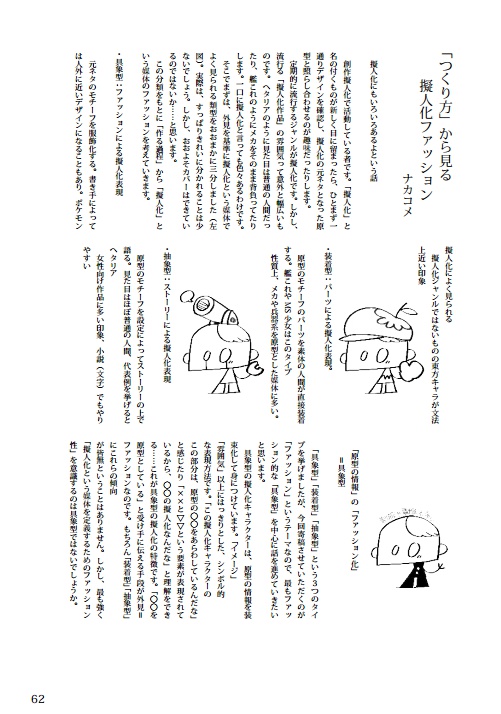 「つくり方」から見る
擬人化ファッション
ナカコメ
擬人化にもいろいろあるよという話
創作擬人化で活動している者です。「擬人化」と
名の付くものが新しく目に留まったら、ひとまず一
通りデザインを確認し、擬人化の元ネタとなった原
型と照らし合わせるのが趣味だったりします。
定期的に流行するジャンルが擬人化です。しかし、
流行る「擬人化作品」の雰囲気って意外と幅広いも
のです。ヘタリアのように見た目は普通の人間だっ
たり、艦これのようにメカをそのまま背負ってたり
します。一口に擬人化と言っても色々あるわけです。
そこでまずは、外見を基準に擬人化という媒体で
よく見られる類型をおおまかに三分しました(左
図)。実際は、すっぱりきれいに分かれることは少
ないでしょう。しかし、おおよそカバーはできてい
るのではないか……と思います。
この分類をもとに「作る過程」から「擬人化」と
いう媒体のファッションを考えていきます。
・具象型：ファッションによる擬人化表現
元ネタのモチーフを服飾化する。書き手によって
は人外に近いデザインになることもあり。ポケモン
擬人化によく見られる
擬人化ジャンルではないものの東方キャラが文法
上近い印象
・装着型：パーツによる擬人化表現。
原型のモチーフのパーツを素体の人間が直接装着
する。艦これや MS 少女はこのタイプ
性質上、メカや兵器系を原型とした媒体に多い。
・抽象型：ストーリーによる擬人化表現
原型のモチーフを設定によってストーリーの上で
語る。見た目はほぼ普通の人間、代表例を挙げると
ヘタリア
女性向け作品に多い印象、小説（文字）でもやり
やすい
「原型の情報」の「ファッション化」
＝具象型
「具象型」「装着型」「抽象型」という3つのタイ
プを挙げましたが、今回寄稿させていただくのが
「ファッション」というテーマなので、最もファッ
ション的な「具象型」を中心に話を進めていきたい
と思います。
具象型の擬人化キャラクターは、原型の情報を装
束化して身につけています。「イメージ」
「雰囲気」以上にはっきりとした、シンボル的
な表現方法です。「この擬人化キャラクターの
この部分は、原型の〇〇をあらわしているんだな」
と感じたり「××と▽▽という要素が表現されて
いるから、〇〇の擬人化なんだな」と理解をでき
る……これが具象型の擬人化の特徴です。「〇〇を
原型としている」と受け手に伝える手段が外見＝
ファッションなのです。もちろん「装着型」「抽象型」
にこれらの傾向
が皆無ということはありません。しかし、最も強く
「擬人化という媒体を定義するためのファッション
性」を意識するのは具象型ではないでしょうか。
62